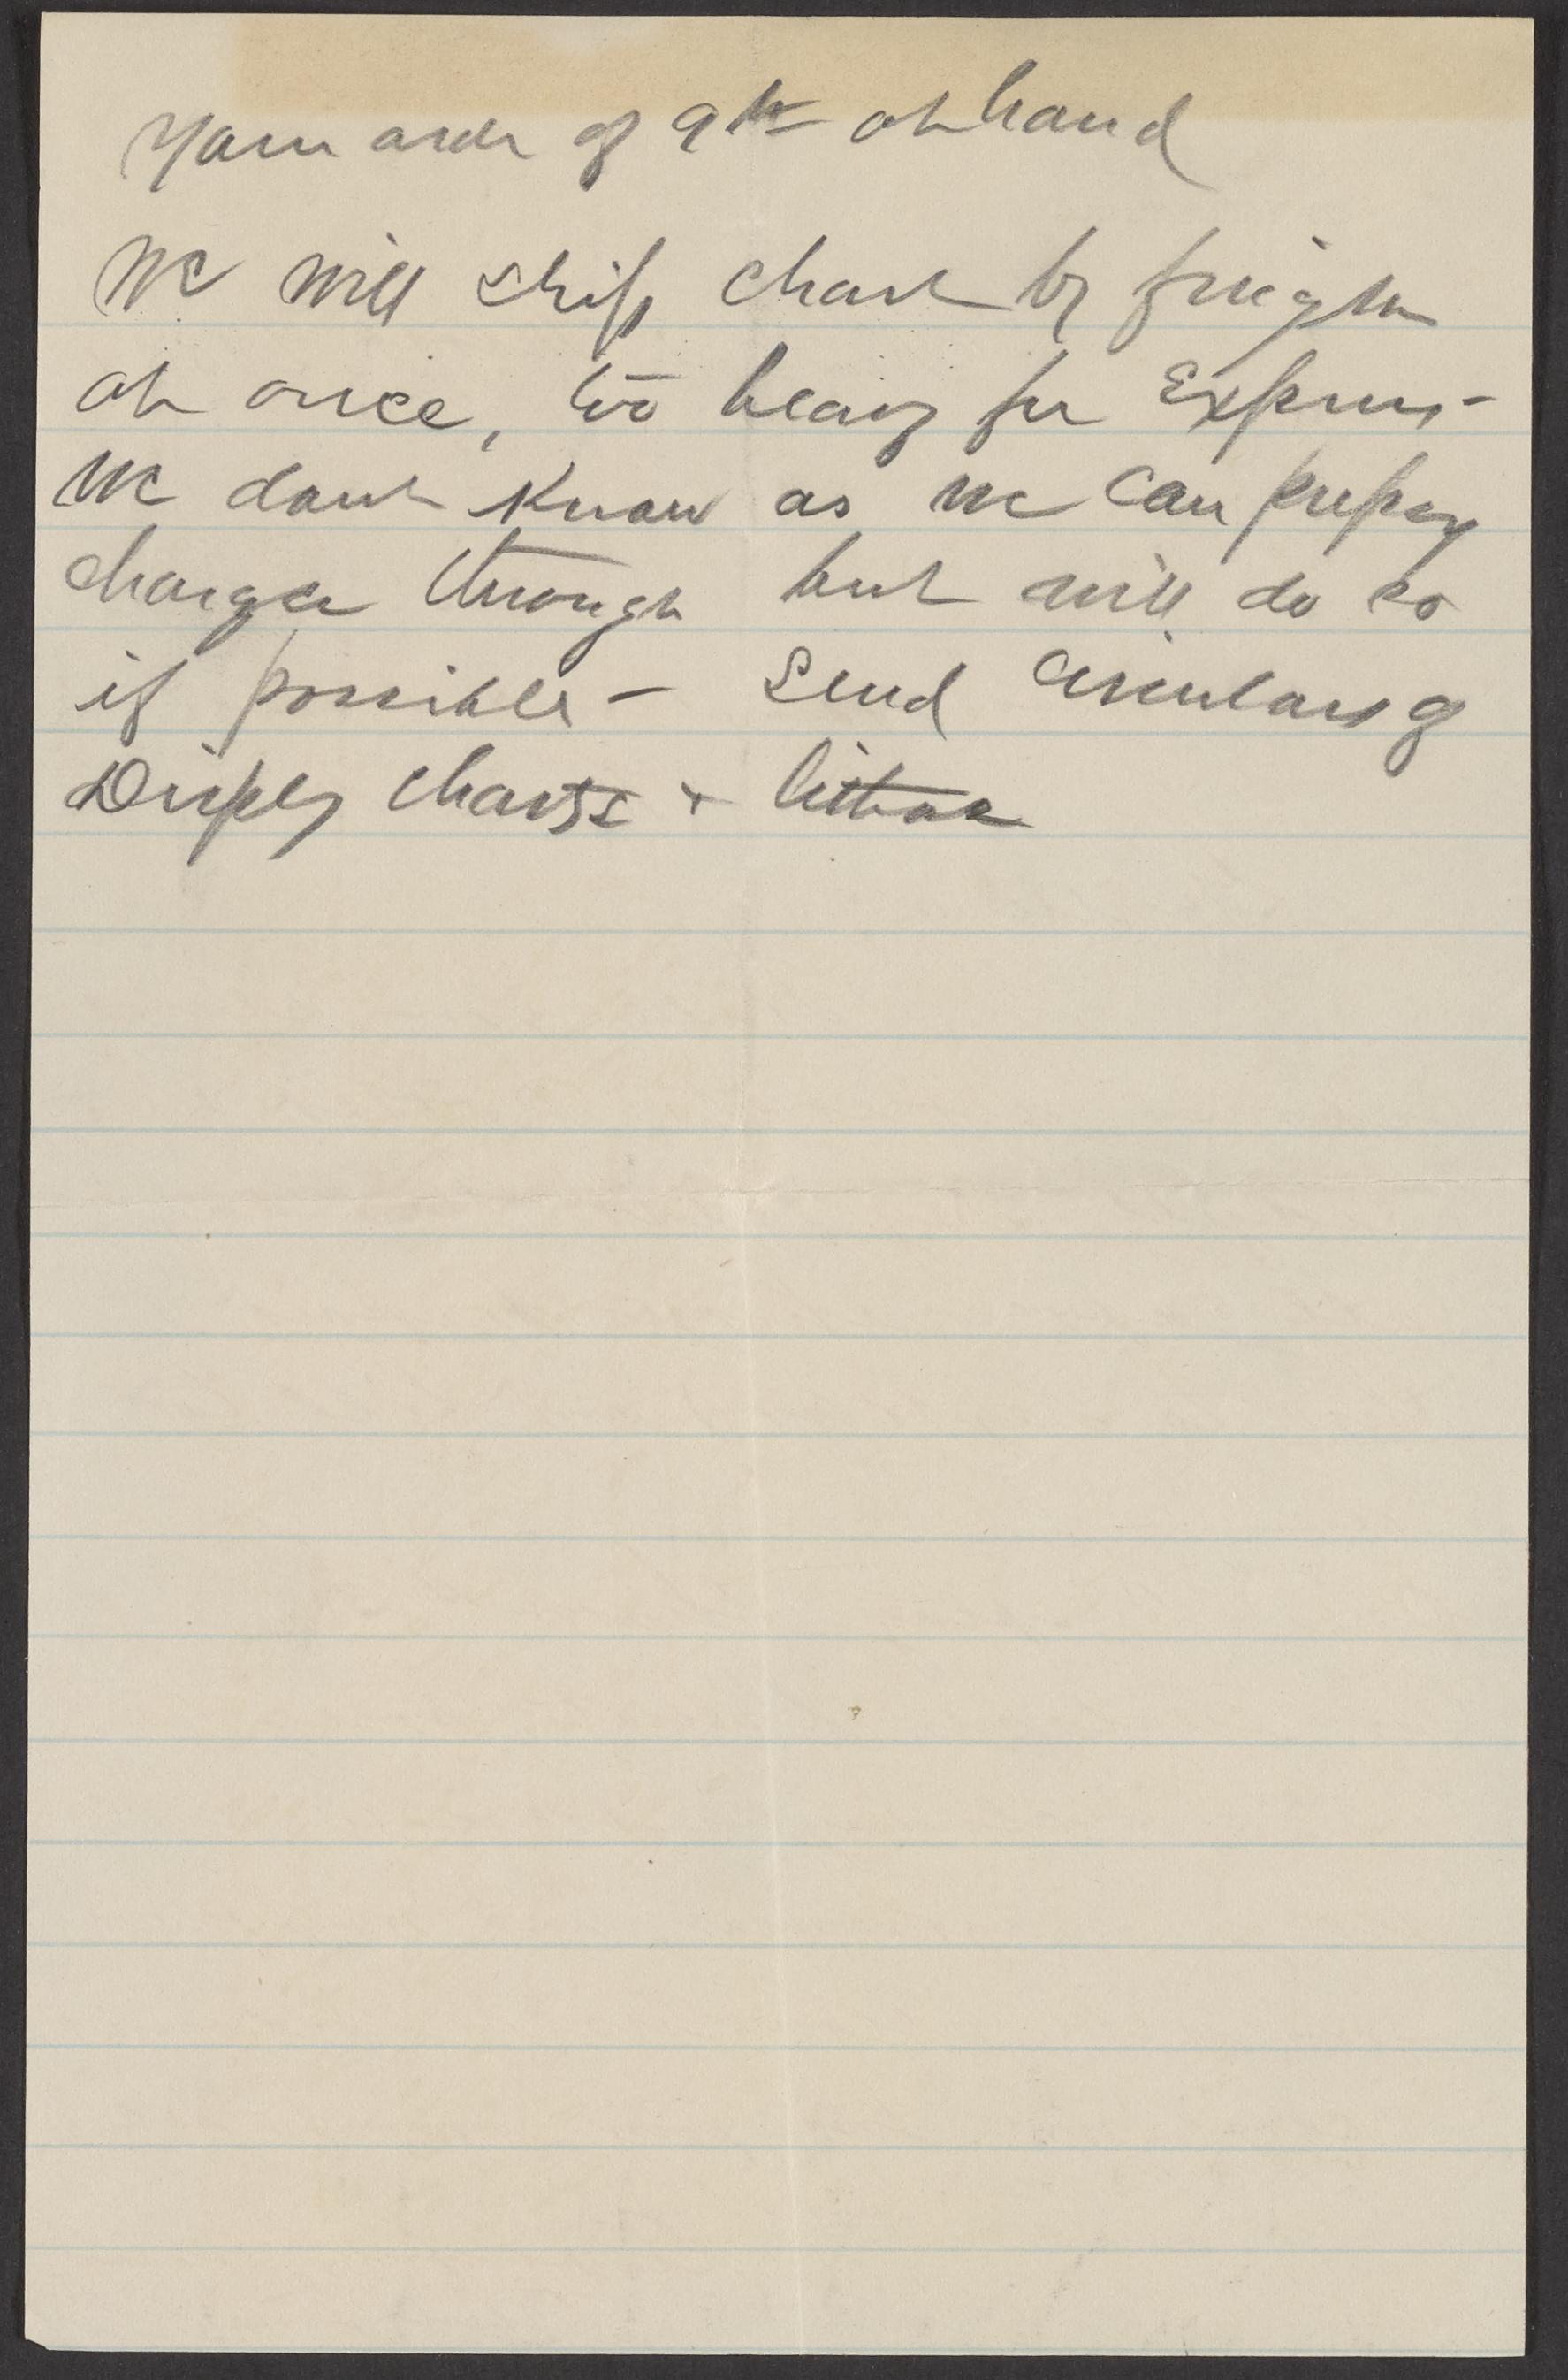 Your order of 9th at hand
We will ship chart by freight
at once, too heavy for Express -
We dont know as we can prepay
charges through but will do so
if possible - Send circulars of
Display charts &